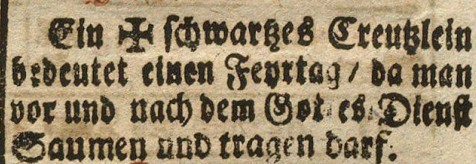 Ein ✠ schwartzes Creutzlein
bedeutet einen Feyrtag / da man
vor und nach dem Gottes Dienst
Saumen und tragen darf.